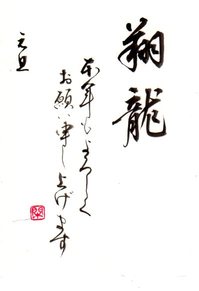 翔龍
本年もよろしく
お願い申し上げます
元旦